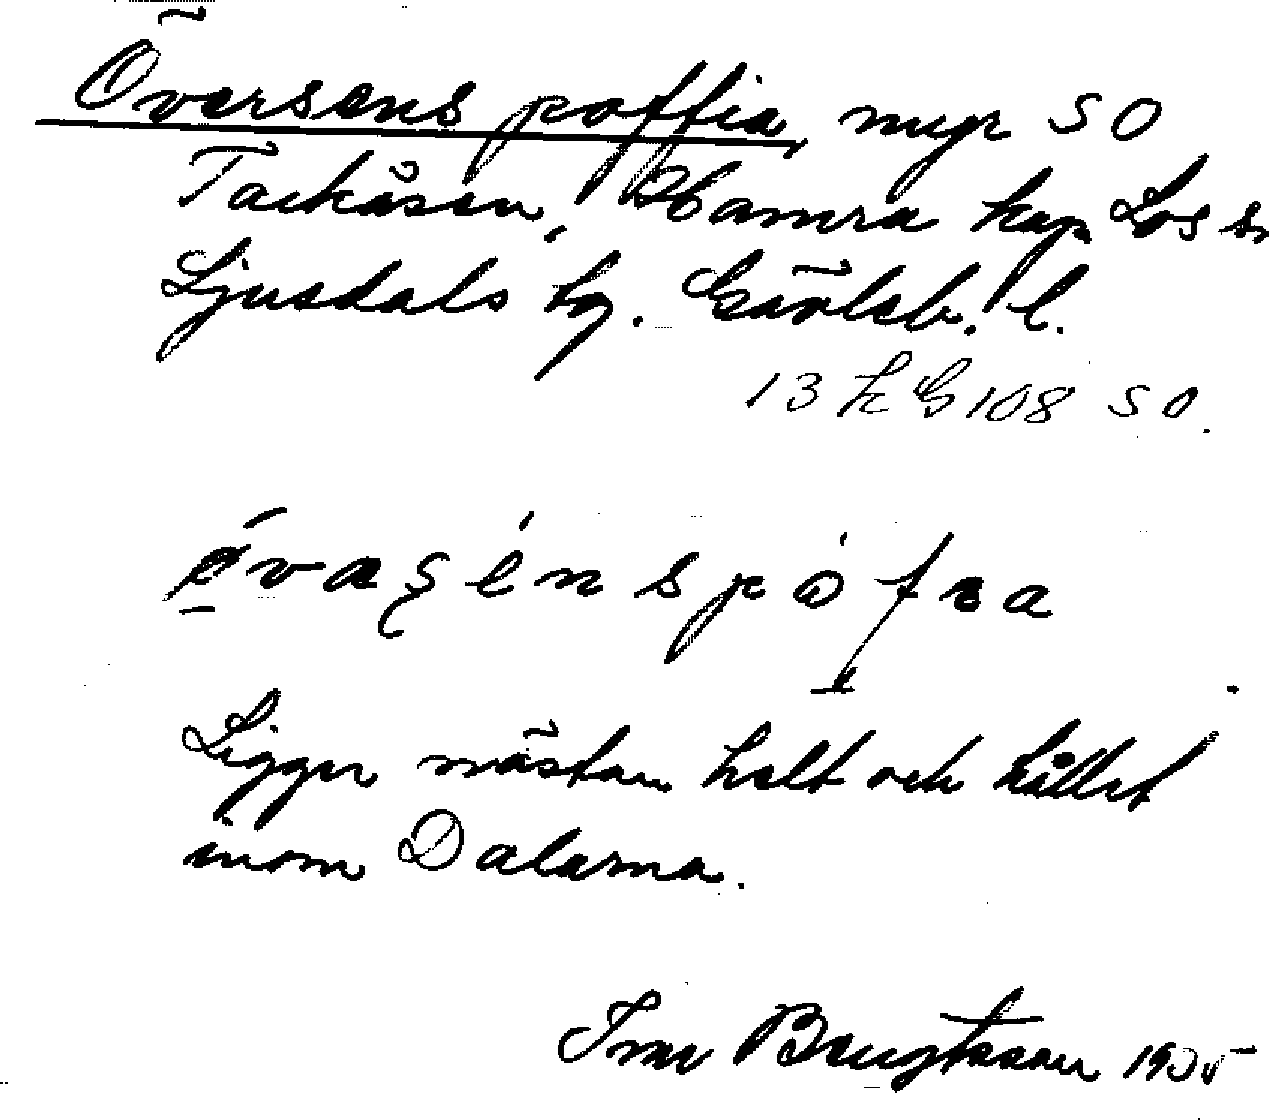 Översens poffia, myr SO
Tackåsen, Hamra kap Los sn
Ljusdals tg. Gävleb. l.
13 k G 108 SO.
Ligger nästan helt och hållet
inom Dalarna.
Ivar Bengtsson 1935